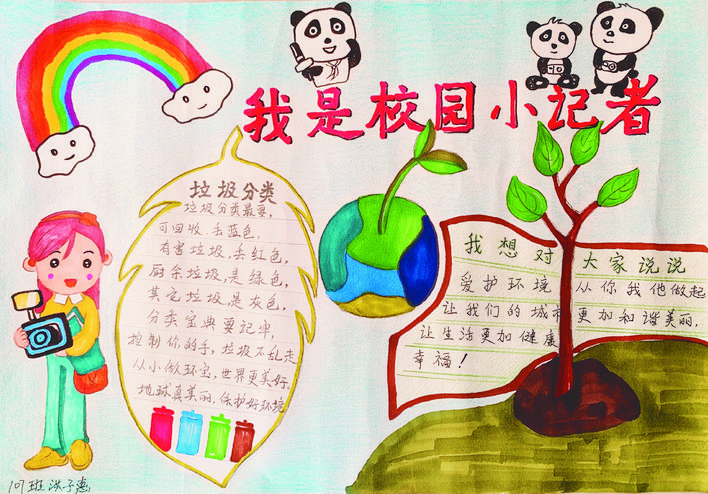 我是校园小记者
垃圾分类
垃圾分类最要，
可回收，丢蓝色，
有害垃圾，丢红色，
厨余垃圾，是绿色，
其它垃圾，是灰色，
分类宝典要记牢，
控制你的手，垃圾不乱走
从小做环宝，世界更美好。
地球真美丽，保护好环境
我想对大家说说
爱护环境从你我他做起
让我们的城市更加和谐美丽，
让生活更加健康
幸福！
107班 洪子惠